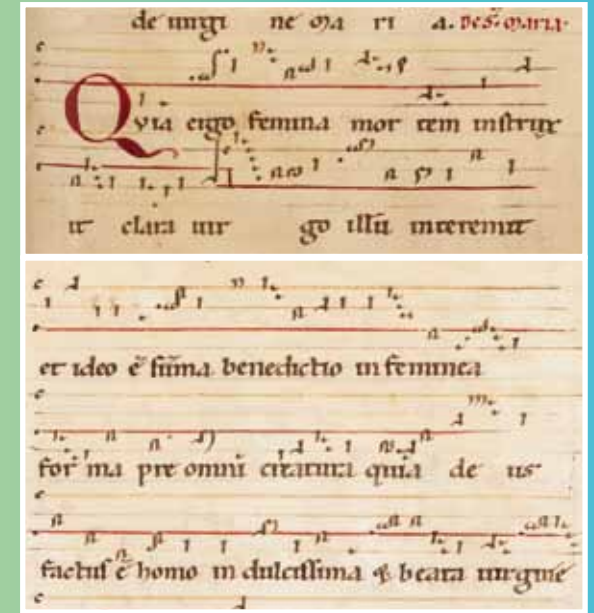 de uirgi ne ma ri a. De s. Maria.
Quia ergo femina mor tem instrux
it clara uir go illā interemit
et ideo ē sūma benedictio in feminea
for ma pre omni creatura quia de us
factus ē homo in dulcissima & beata uirgine